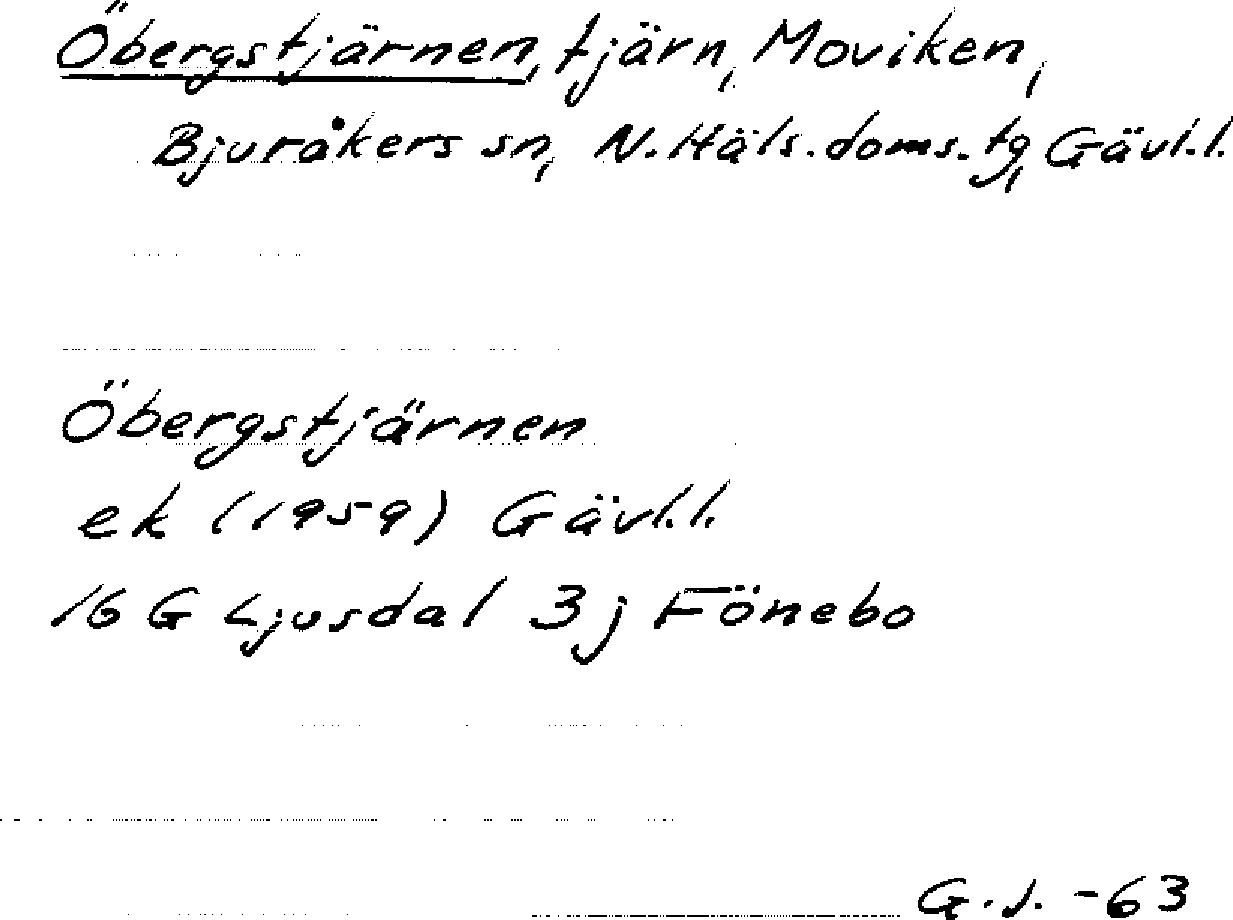 Öbergstjärnen, tjärn, Moviken,
Bjuråkers sn, N.Häls.doms.tg, Gävl.l.
Öbergstjärnen
ek (1959) Gävl.l.
16 G Ljusdal 3j Fönebo
G.J. -63